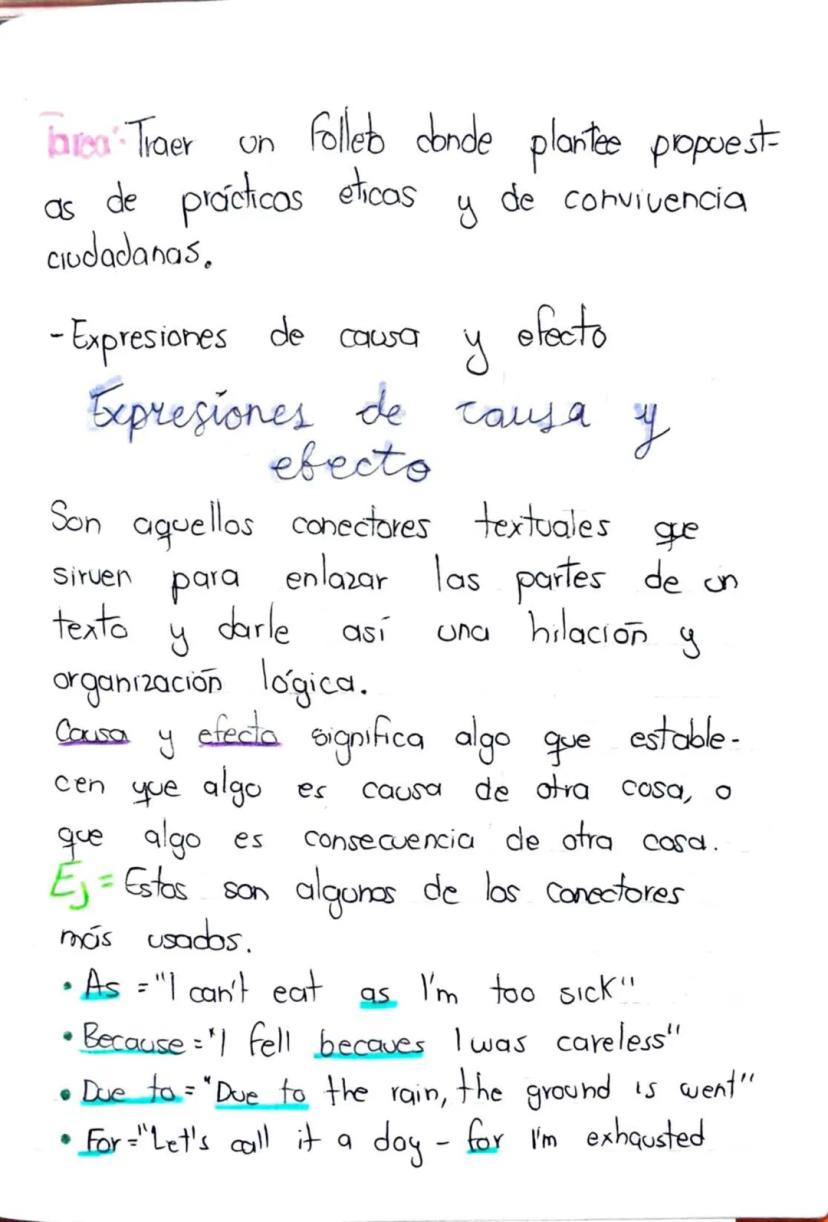 Tarea: Traer un folleto donde plantee propuest-
as de prácticas eticas y de convivencia
ciudadanas.
-Expresiones de causa y efecto
Expresiones de causa y
efecto
Son aquellos conectores textuales que
sirven para enlazar las partes de un
texto y darle así una hilación y
organización lógica.
Causa y efecto significa algo que estable-
cen que algo es causa de otra cosa, o
que algo es consecuencia de otra cosa.
Ej= Estos son algunos de los conectores
más usados.
• As = "I can't eat as I'm too sick"
• Because = "I fell becaues I was careless"
• Due to = "Due to the rain, the ground is went"
• For = "Let's call it a day - for I'm exhausted